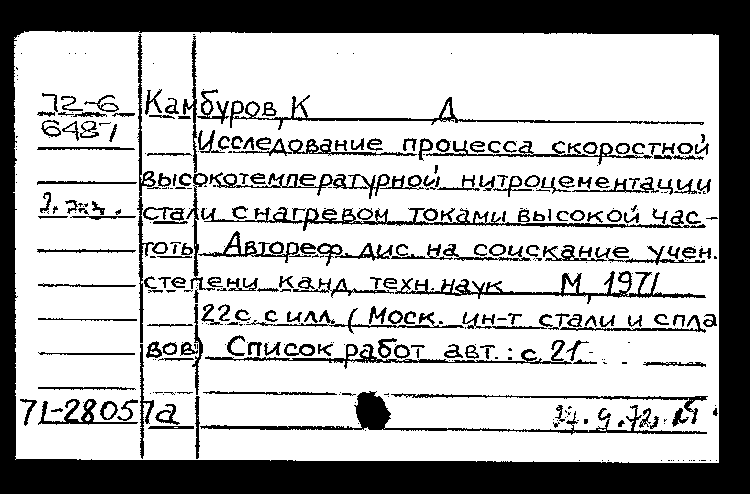 72-6 Камбуров, К Д
6487
Исследование процесса скоростной
высокотемпературной нитроцементации
стали с нагревом токами высокой час-
тоты Автореф. дис. на соискание учен.
степени канд. техн. наук М, 1971
22 с. с илл. (Моск. ин-т стали и спла
вов) Список работ авт.: с. 21.
71-28057а 27.9.72.